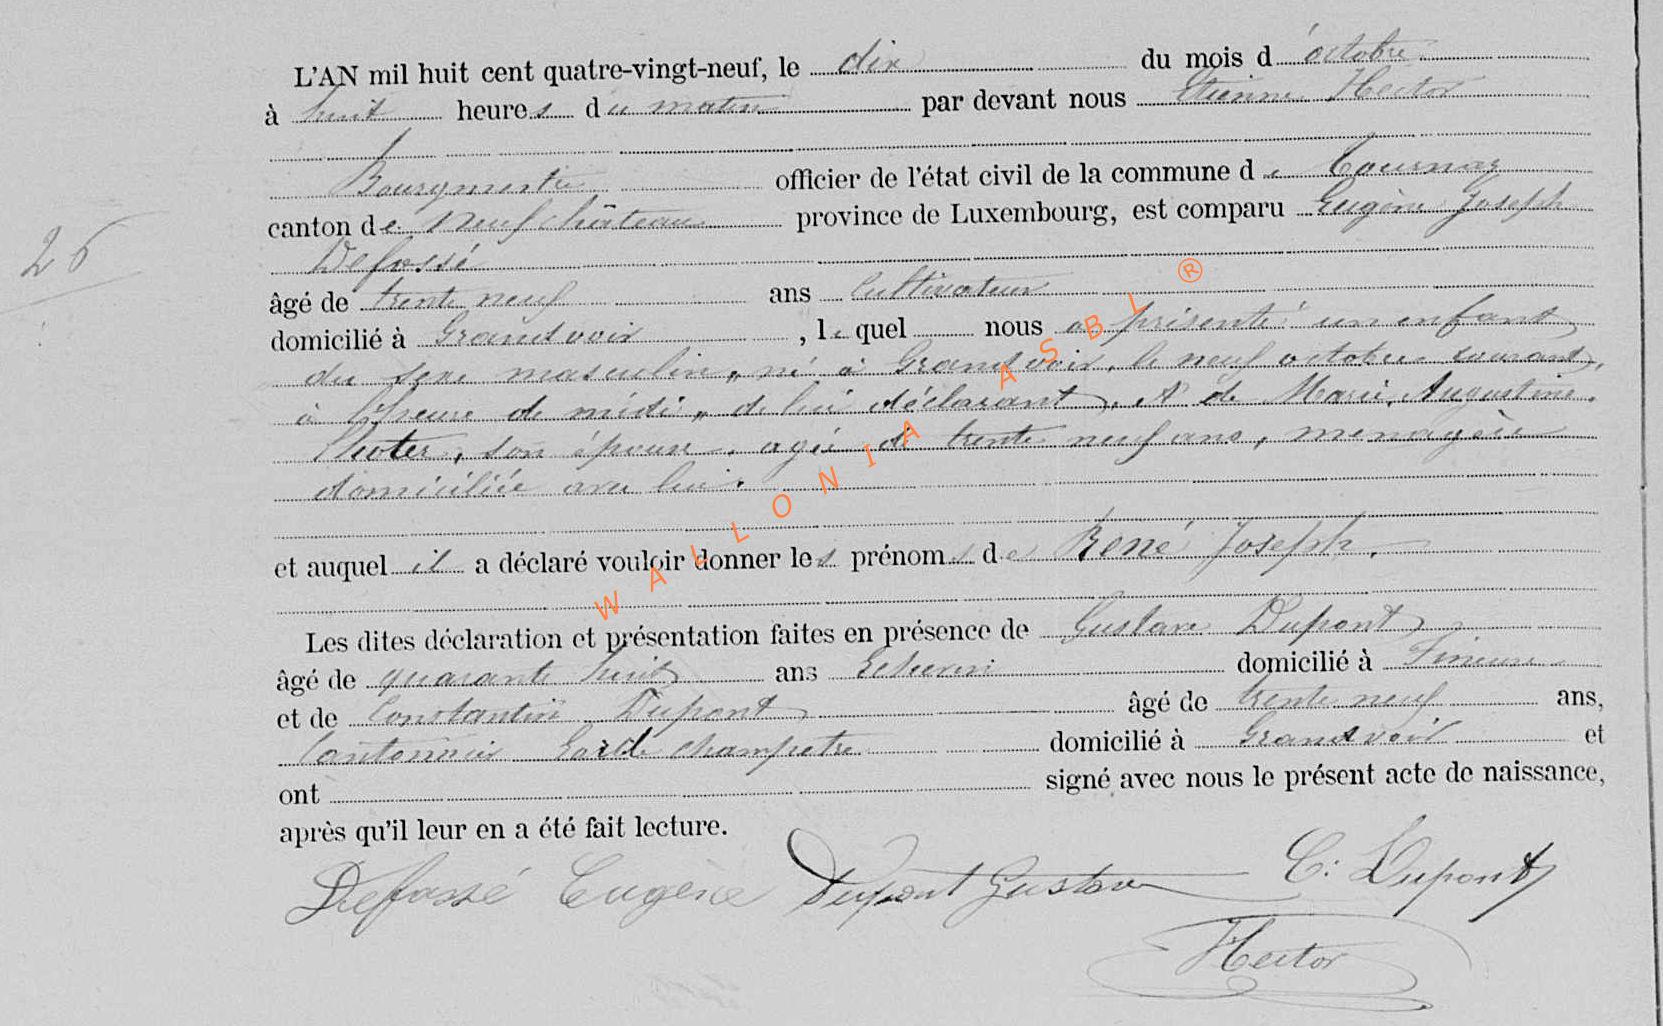 L'AN mil huit cent quatre-vingt-neuf, le dix du mois d'octobre
à huit heures du matin par devant nous Etienne Hector
Bourgmestre officier de l'état civil de la commune de Tournay
canton de Neufchâteau province de Luxembourg, est comparu Eugène Joseph
26
Defossé
âgé de trente neuf ans Cultivateur
domicilié à Grandvoir, le quel nous a présenté un enfant
du sexe masculin, né à Grandvoir, le neuf octobre courant,
à l'heure de midi, de lui déclarant, & de Marie, Augustine
son épouse, agée de trente neuf ans, menagère
domiciliée avec lui.
et auquel il a déclaré vouloir donner les prénoms de René Joseph.
Les dites déclaration et présentation faites en présence de Gustave Dupont
âgé de quarante huit ans Echevin domicilié à
et de Constantin Dupont âgé de trente neuf ans,
Cantonnier Garde champetre domicilié à Grandvoir et
ont signé avec nous le présent acte de naissance,
après qu'il leur en a été fait lecture.
Defossé Eugène Dupont Gustave C. Dupont
Hector
WALLONIA ASBL ®